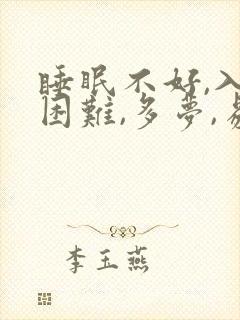 睡眠不好,入
困難,多夢,易
李玉燕